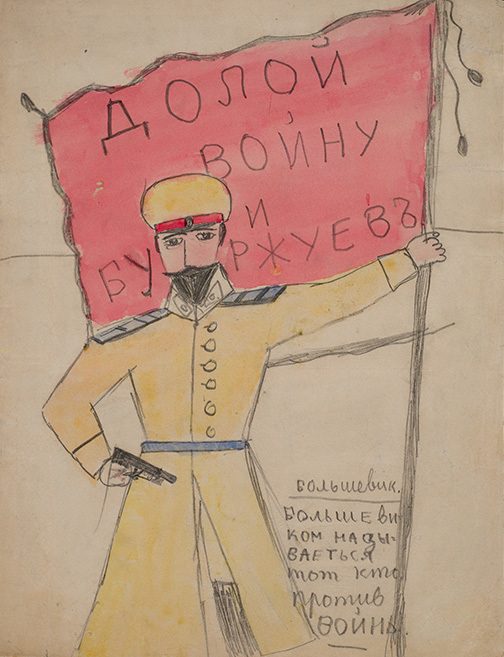 ДОЛОЙ
ВОЙНУ
И
БУРЖУЕВЪ
большевик.
БОЛЬШЕВИ
КОМ НАЗЫ-
ВАЕТЬСЯ
тот кто
против
ВОЙНЫ.